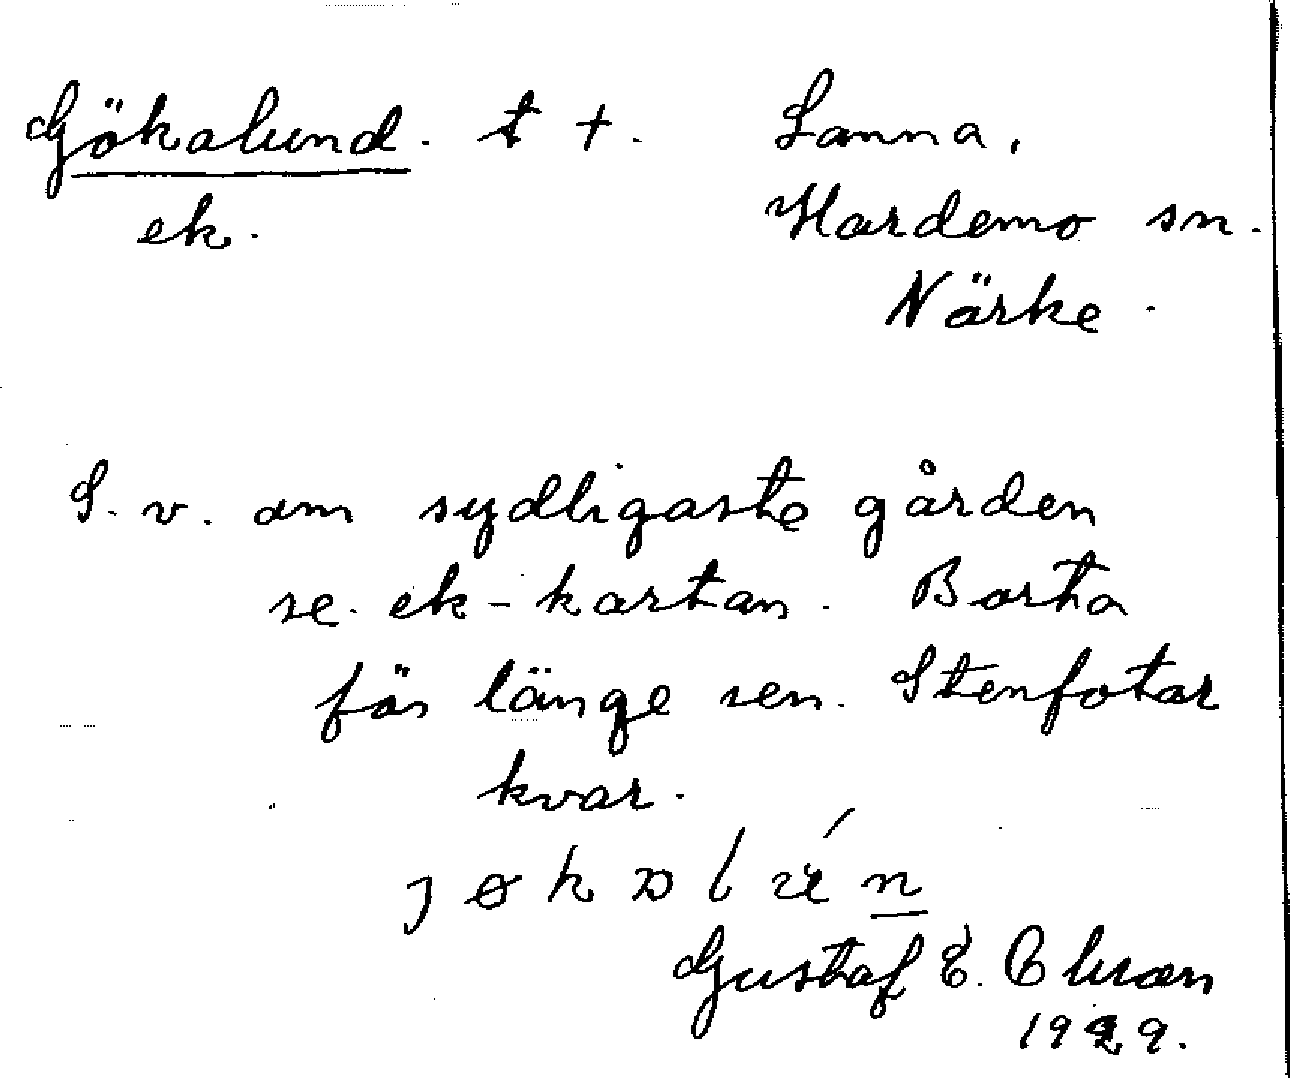 Gökalund. t +. Lanna.
ek. Hardemo sn.
Närke.
S. v. om sydligaste gården
se. ek-kartan. Borta
för länge sen. Stenfotar
kvar.
Gustaf E.
1929.